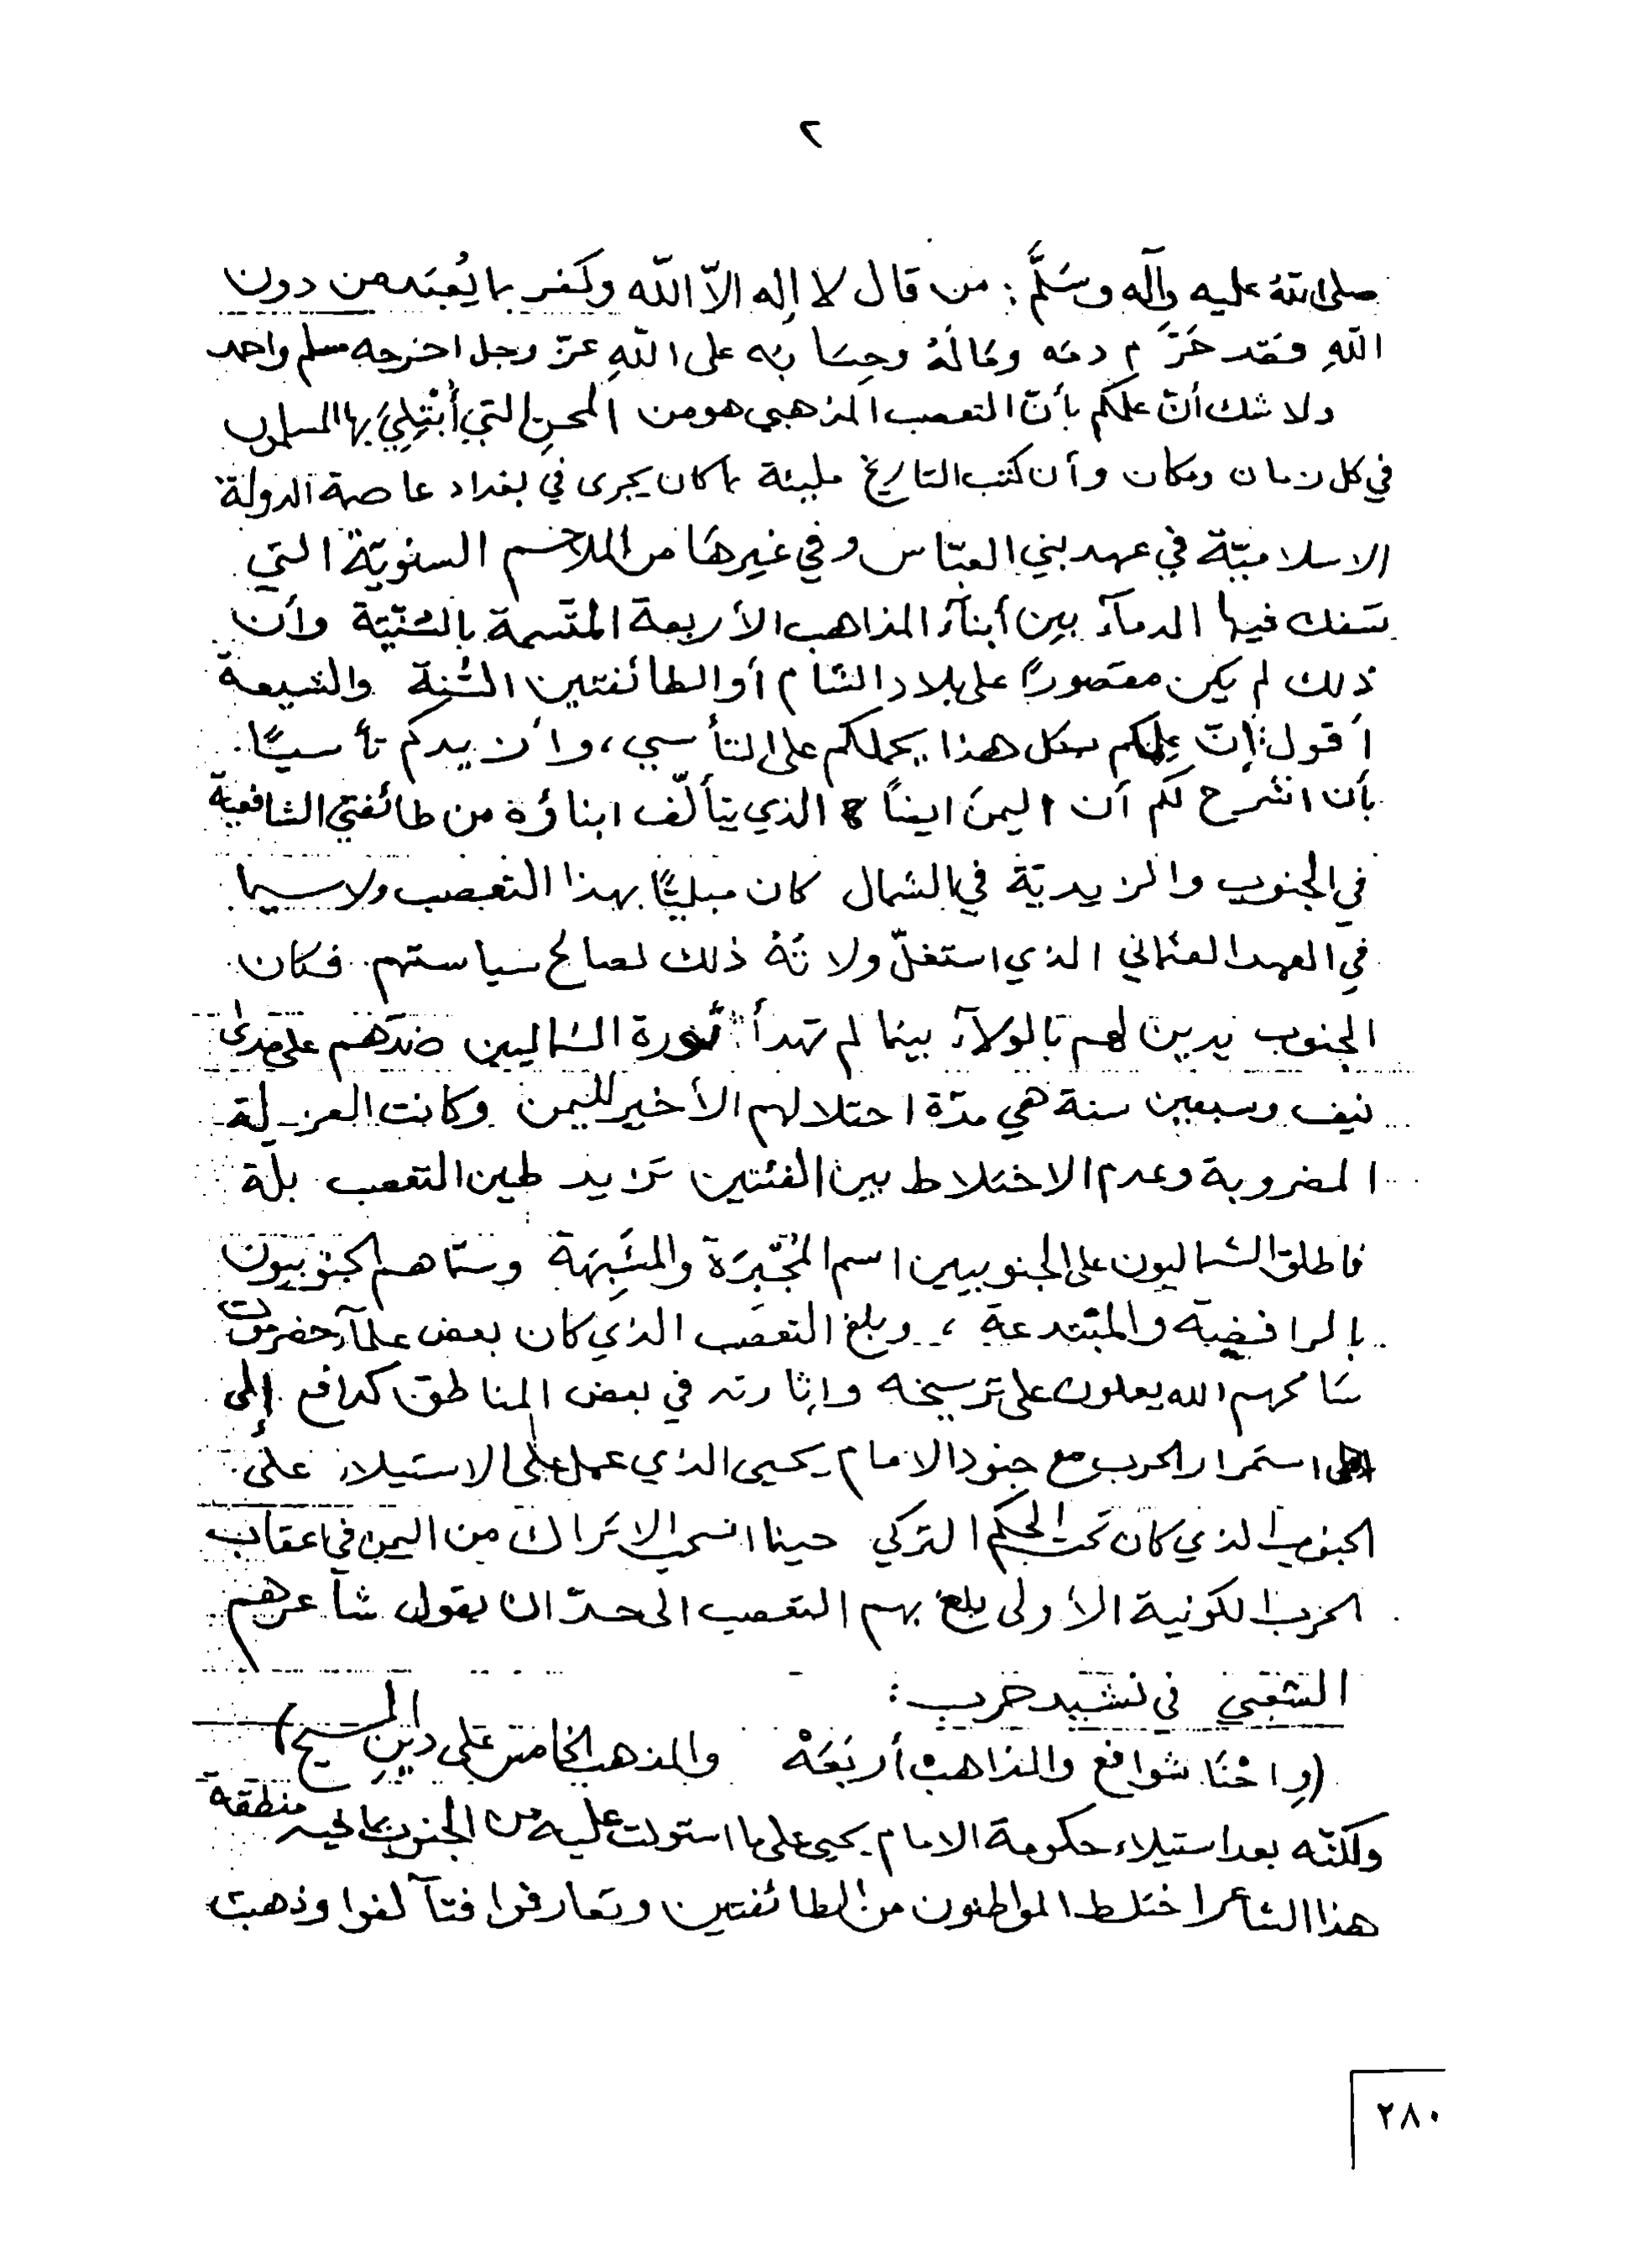 ٢
صلى الله عليه وآله وسَلَّم : من قال لا إله الاّ الله وكفر بما يُعبَد من دون
اللهِ فقد حَرَّم دمَه ومَالَهُ وحِسَابَه على اللهِ عزّ وجل اخرجه مسلم واحمد
ولا شك أنّ علمكم بأنّ التعصب المذهبي هو من المحنِ التي أُبْتُلِيَ بها المسلمون
في كل زمان ومكان وأن كتب التاريخ مليئة بما كان يجرى في بغداد عاصمة الدولة
الاسلاميّة في عهد بني العبّاس وفي غيرهَا من الملاحم السنويّة التي
تسفك فيها الدمآء بين أبنآء المذاهب الأربعة المتسمة بالسُّنّيّة وأن
ذلك لم يكن مقصورًا على بلاد الشام أو الطائفتين السُّنة والشيعة
أقول : إنّ علمكم بكل هذا يحملكم على التأسي ، وأن يدكم تأسيًا
بأن اشرح لكم أن اليمنَ ايضاً الذي يتألّف ابناؤه من طائفتي الشافعية
في الجنوب والزيديّة في الشمال كان مبليًا بهذا التعصب ولاسيما
في العهد العثماني الذي استغلّ ولاتُهُ ذلك لصالح سياستهم فكان
الجنوب يدين لهم بالولآء بينما لم تهدأ ثورة الشماليين ضدَهم على مدى
نيف وسبعين سنة هي مدّة احتلالهم الأخير لليمن وكانت العزلة
المضروبة وعدم الاختلاط بين الفئتين تزيد طين التعصب بلة
فاطلق الشماليون على الجنوبيين اسم المُجْبِرَة والمشَبِهَة وسمّاهم الجنوبيون
بالرافضية والمبْتدعة ، وبلغ التعصَب الذي كان بعض علمآء حضرموت
سَامحهم الله يعملون على ترسيخه وإثارته في بعض المناطق كدافع إلى
استمرار الحرب مع جنود الامام يحيى الذي عمل على الاستيلاء على
الجنوب الذي كان تحت الحكم التركي حينما انسحب الاتراك من اليمن في اعقاب
الحرب الكونية الأولى بلغ بهم التعصب الى حدّ ان يقول شآعرهم
الشعبي في نشيد حَرب :
(وِاحْنَا شوافع والمذاهبْ أربَعَهْ والمذهب الخامس على دينِ المسيح)
ولكنّه بعد استيلاء حكومة الامام يحيى على ما استولت عليه من الجنوب بما فيه منطقة
هذا الشاعر اختلط المواطنون من الطائفتين وتعارفوا فتآلفوا وذهبت
٢٨٠